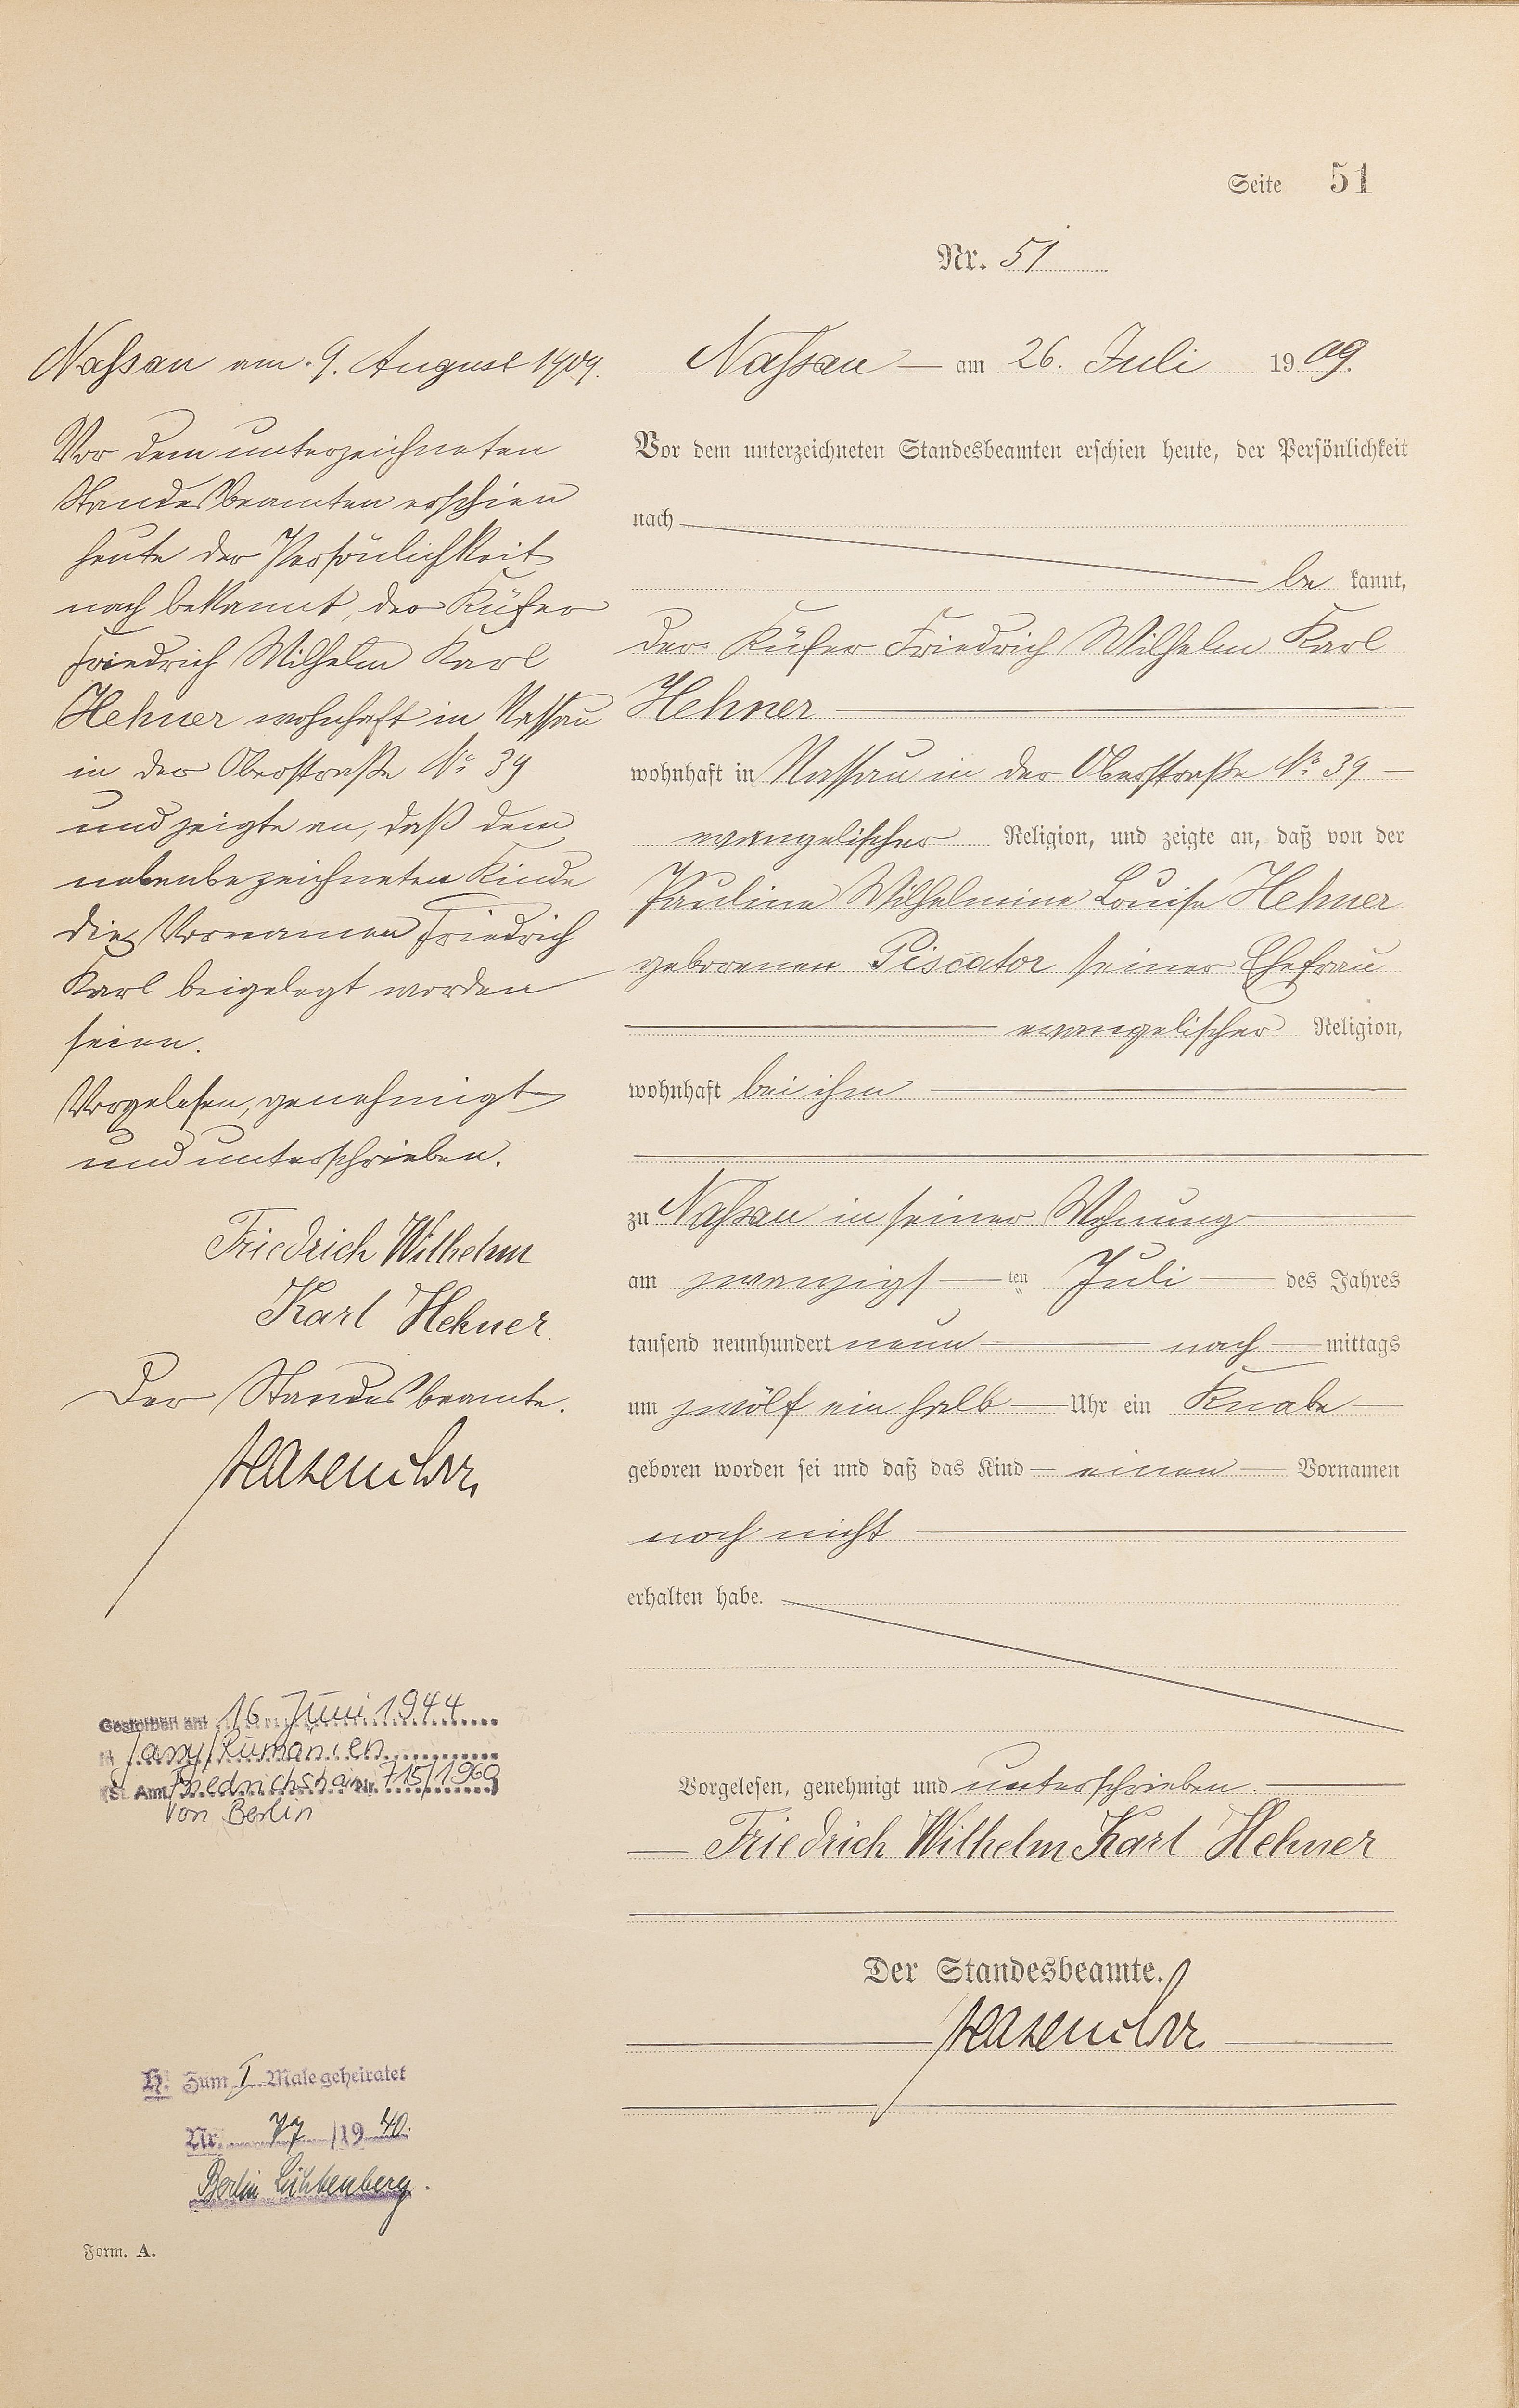 Seite 51
Nr. 51
Nassau am 26. Juli 1909.
Vor dem unterzeichneten Standesbeamten erschien heute, der Persönlichkeit
nach
be kannt,
der Küfer Friedrich Wilhelm Karl
Hehner
wohnhaft in Nassau in der Oberstraße No 39
evangelischer Religion, und zeigte an, daß von der
Pauline Wilhelmine Louise Hehner
geborenen Piscator seiner Ehefrau
evangelischer Religion,
wohnhaft bei ihm
zu Nassau in seiner Wohnung
am zwanzigsten Juli des Jahres
tausend neunhundert neun nach mittags
um zwölf ein halb Uhr ein Knabe
geboren worden sei und daß das Kind einen Vornamen
noch nicht
erhalten habe.
Vorgelesen, genehmigt und unterschrieben.
Friedrich Wilhelm Karl Hehner
Der Standesbeamte.
Nassau am 9. August 1909.
Vor dem unterzeichneten
Standesbeamten erschien
heute der Persönlichkeit
nach bekannt, der Küfer
Friedrich Wilhelm Karl
Hehner wohnhaft in Nassau
in der Oberstraße No 39
und zeigte an, daß dem
nebenbezeichneten Kinde
die Vornamen Friedrich
Karl beigelegt worden
seien.
Vorgelesen, genehmigt
und unterschrieben.
Friedrich Wilhelm
Karl Hehner.
Der Standesbeamte.
Gestorben am 16. Juni 1944
in Jassy/Rumänien
(St. Amt Friedrichshain Nr. 715/1960)
von Berlin
H. Zum I Male geheiratet
Nr. 77/1940.
Berlin Lichtenberg.
Form. A.